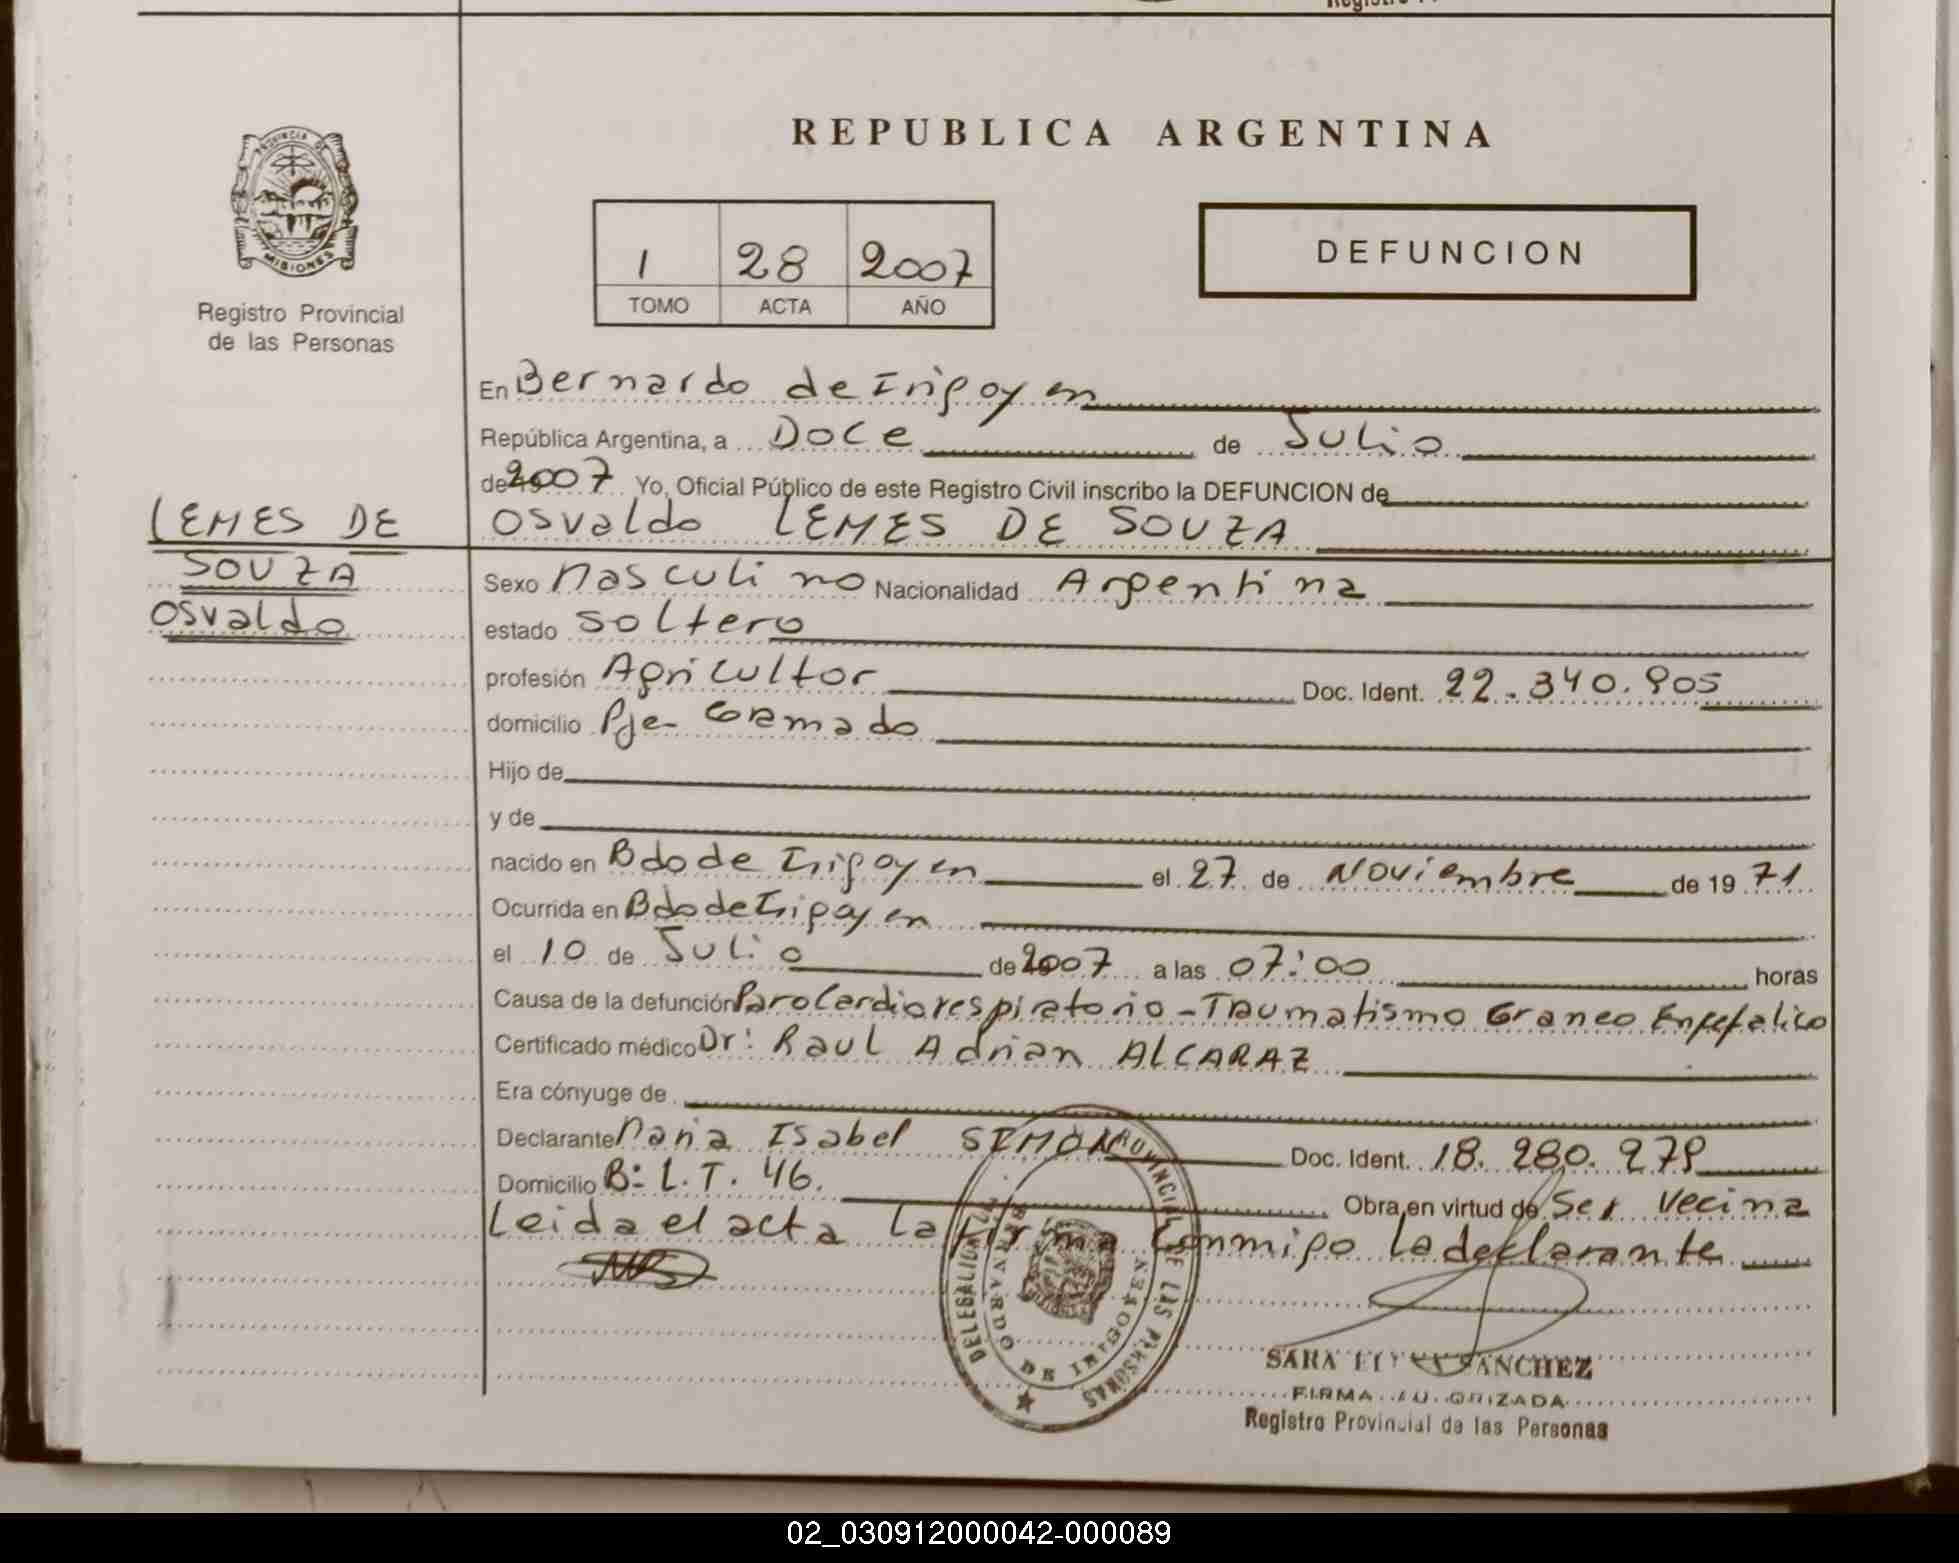 REPUBLICA ARGENTINA
PROVINCIA DE
MISIONES
Registro Provincial
de las Personas
1 28 2007
TOMO ACTA AÑO
DEFUNCION
En Bernardo de Irigoyen
República Argentina, a Doce de Julio
de 2007 Yo, Oficial Público de este Registro Civil inscribo la DEFUNCION de
LEMES DE
SOUZA
Osvaldo
Osvaldo LEMES DE SOUZA
Sexo Masculino Nacionalidad Argentina
estado Soltero
profesión Agricultor Doc. Ident. 22.340.905
domicilio Pje- Gramado
Hijo de
y de
nacido en Bdo de Irigoyen el 27 de Noviembre de 19 71
Ocurrida en Bdo de Irigoyen
el 10 de Julio de 2007 a las 07:00 horas
Causa de la defunción Paro Cardiorespiratorio - Traumatismo Craneo Encefalico
Certificado médico Dr: Raul Adrian ALCARAZ
Era cónyuge de
Declarante Maria Isabel SIMON Doc. Ident. 18.280.279
Domicilio B: L.T. 46. Obra en virtud de Ser Vecina
Leida el acta la firma Conmigo la declarante
DELEGACION PROVINCIAL DE LAS PERSONAS
BERNARDO DE IRIGOYEN
SARA SANCHEZ
FIRMA AUTORIZADA
Registro Provincial de las Personas
02_030912000042-000089